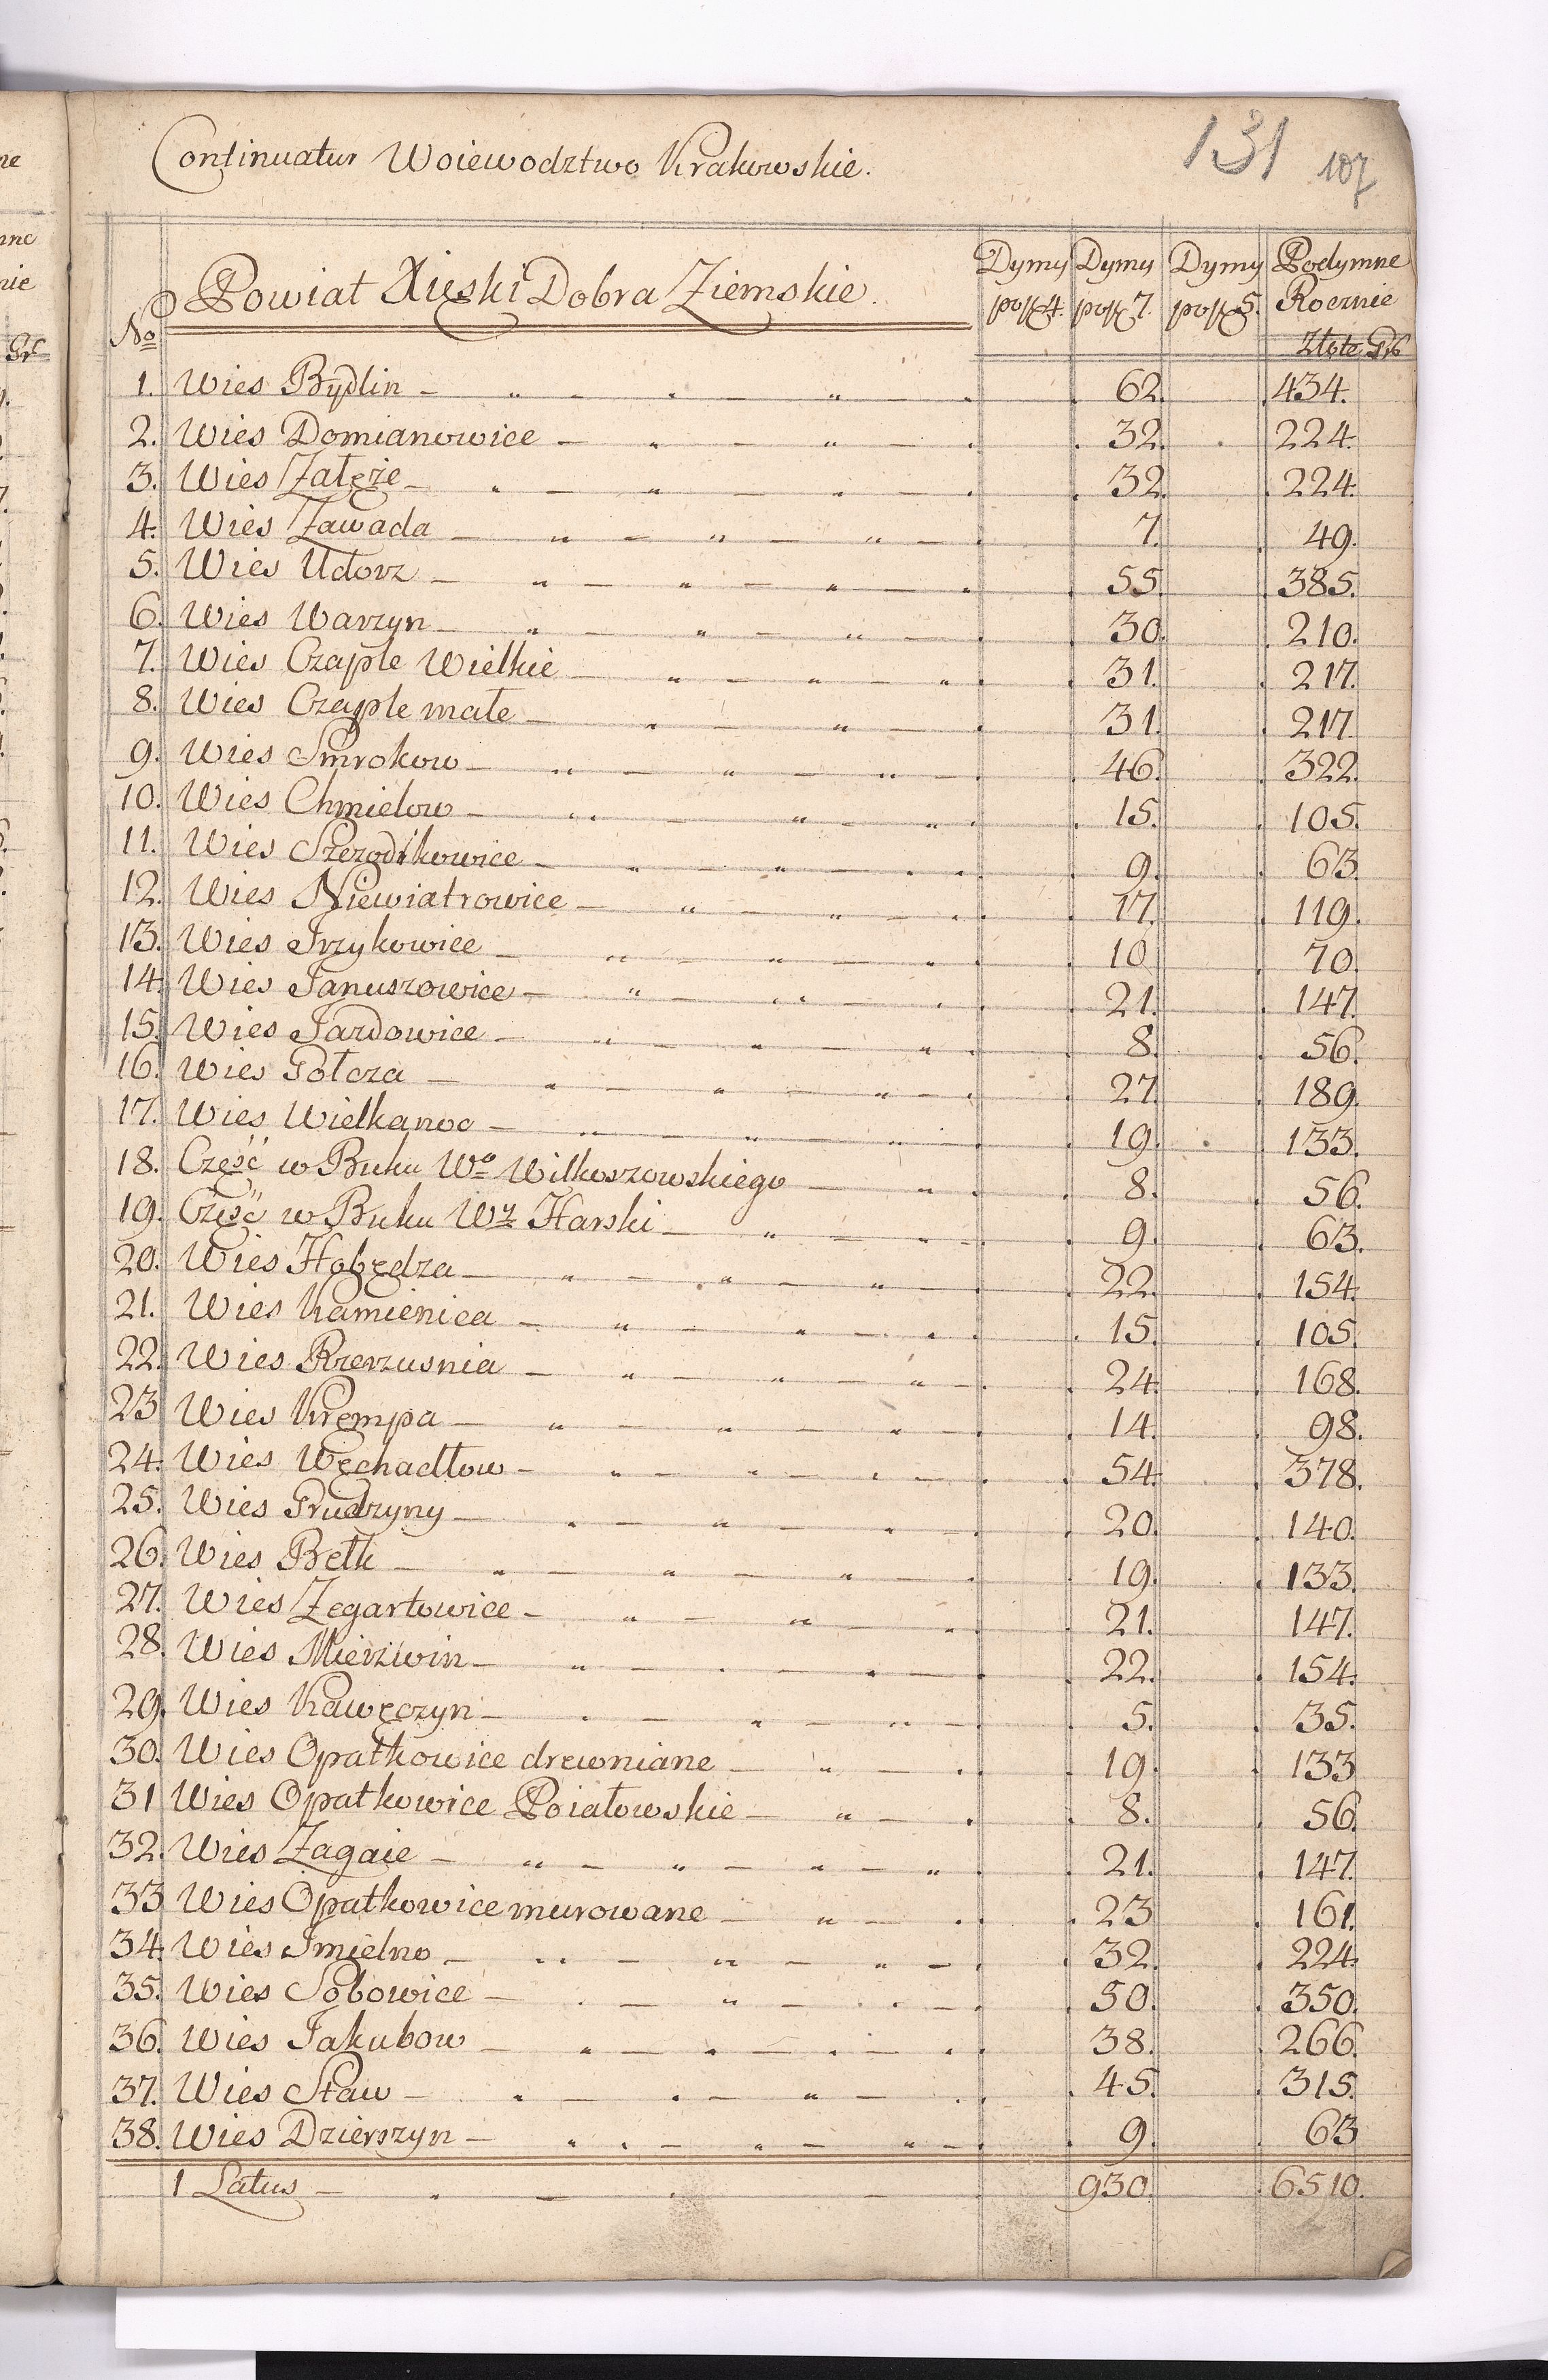 Continuatur Woiewodztwo Krakowskie.
131 107
Powiat Xięski Dobra Ziemskie.
No
Dymy po zł 4. Dymy po zł 7. Dymy po zł 5. Podymne Rocznie
Złote Gr
1. Wies Bydlin 62. 434.
2. Wies Domianowice 32. 224.
3. Wies Załęże 32. 224.
4. Wies Zawada 7. 49.
5. Wies Udorz 55. 385.
6. Wies Warzyn 30. 210.
7. Wies Czaple Wielkie 31. 217.
8. Wies Czaple małe 31. 217.
9. Wies Smrokow 46. 322.
10. Wies Chmielow 15. 105.
11. Wies Szczodrkowice 9. 63.
12. Wies Niewiatrowice 17. 119.
13. Wies Irzykowice 10. 70.
14. Wies Januszowice 21. 147.
15. Wies Jazdowice 8. 56.
16. Wies Gołcza 27. 189.
17. Wies Wielkanoc 19. 133.
18. Część w Buku Wo Wilkoszowskiego 8. 56.
19. Część w Buku Wz Harski 9. 63.
20. Wies Hobędza 22. 154.
21. Wies Kamienica 15. 105.
22. Wies Rzerzusnia 24. 168.
23 Wies Krempa 14. 98.
24. Wies Węchadłow 54. 378.
25. Wies Grudzyny 20. 140.
26. Wies Bełk 19. 133.
27. Wies Zegartowice 21. 147.
28. Wies Mierzwin 22. 154.
29. Wies Kawęczyn 5. 35.
30. Wies Opatkowice drewniane 19. 133
31 Wies Opatkowice Poiałowskie 8. 56.
32. Wies Zagaie 21. 147.
33 Wies Opatkowice murowane 23 161.
34. Wies Imielno 32. 224.
35. Wies Sobowice 50. 350.
36. Wies Jakubow 38. 266.
37. Wies Staw 45. 315.
38. Wies Dzierszyn 9. 63
1 Latus 930. 6510.